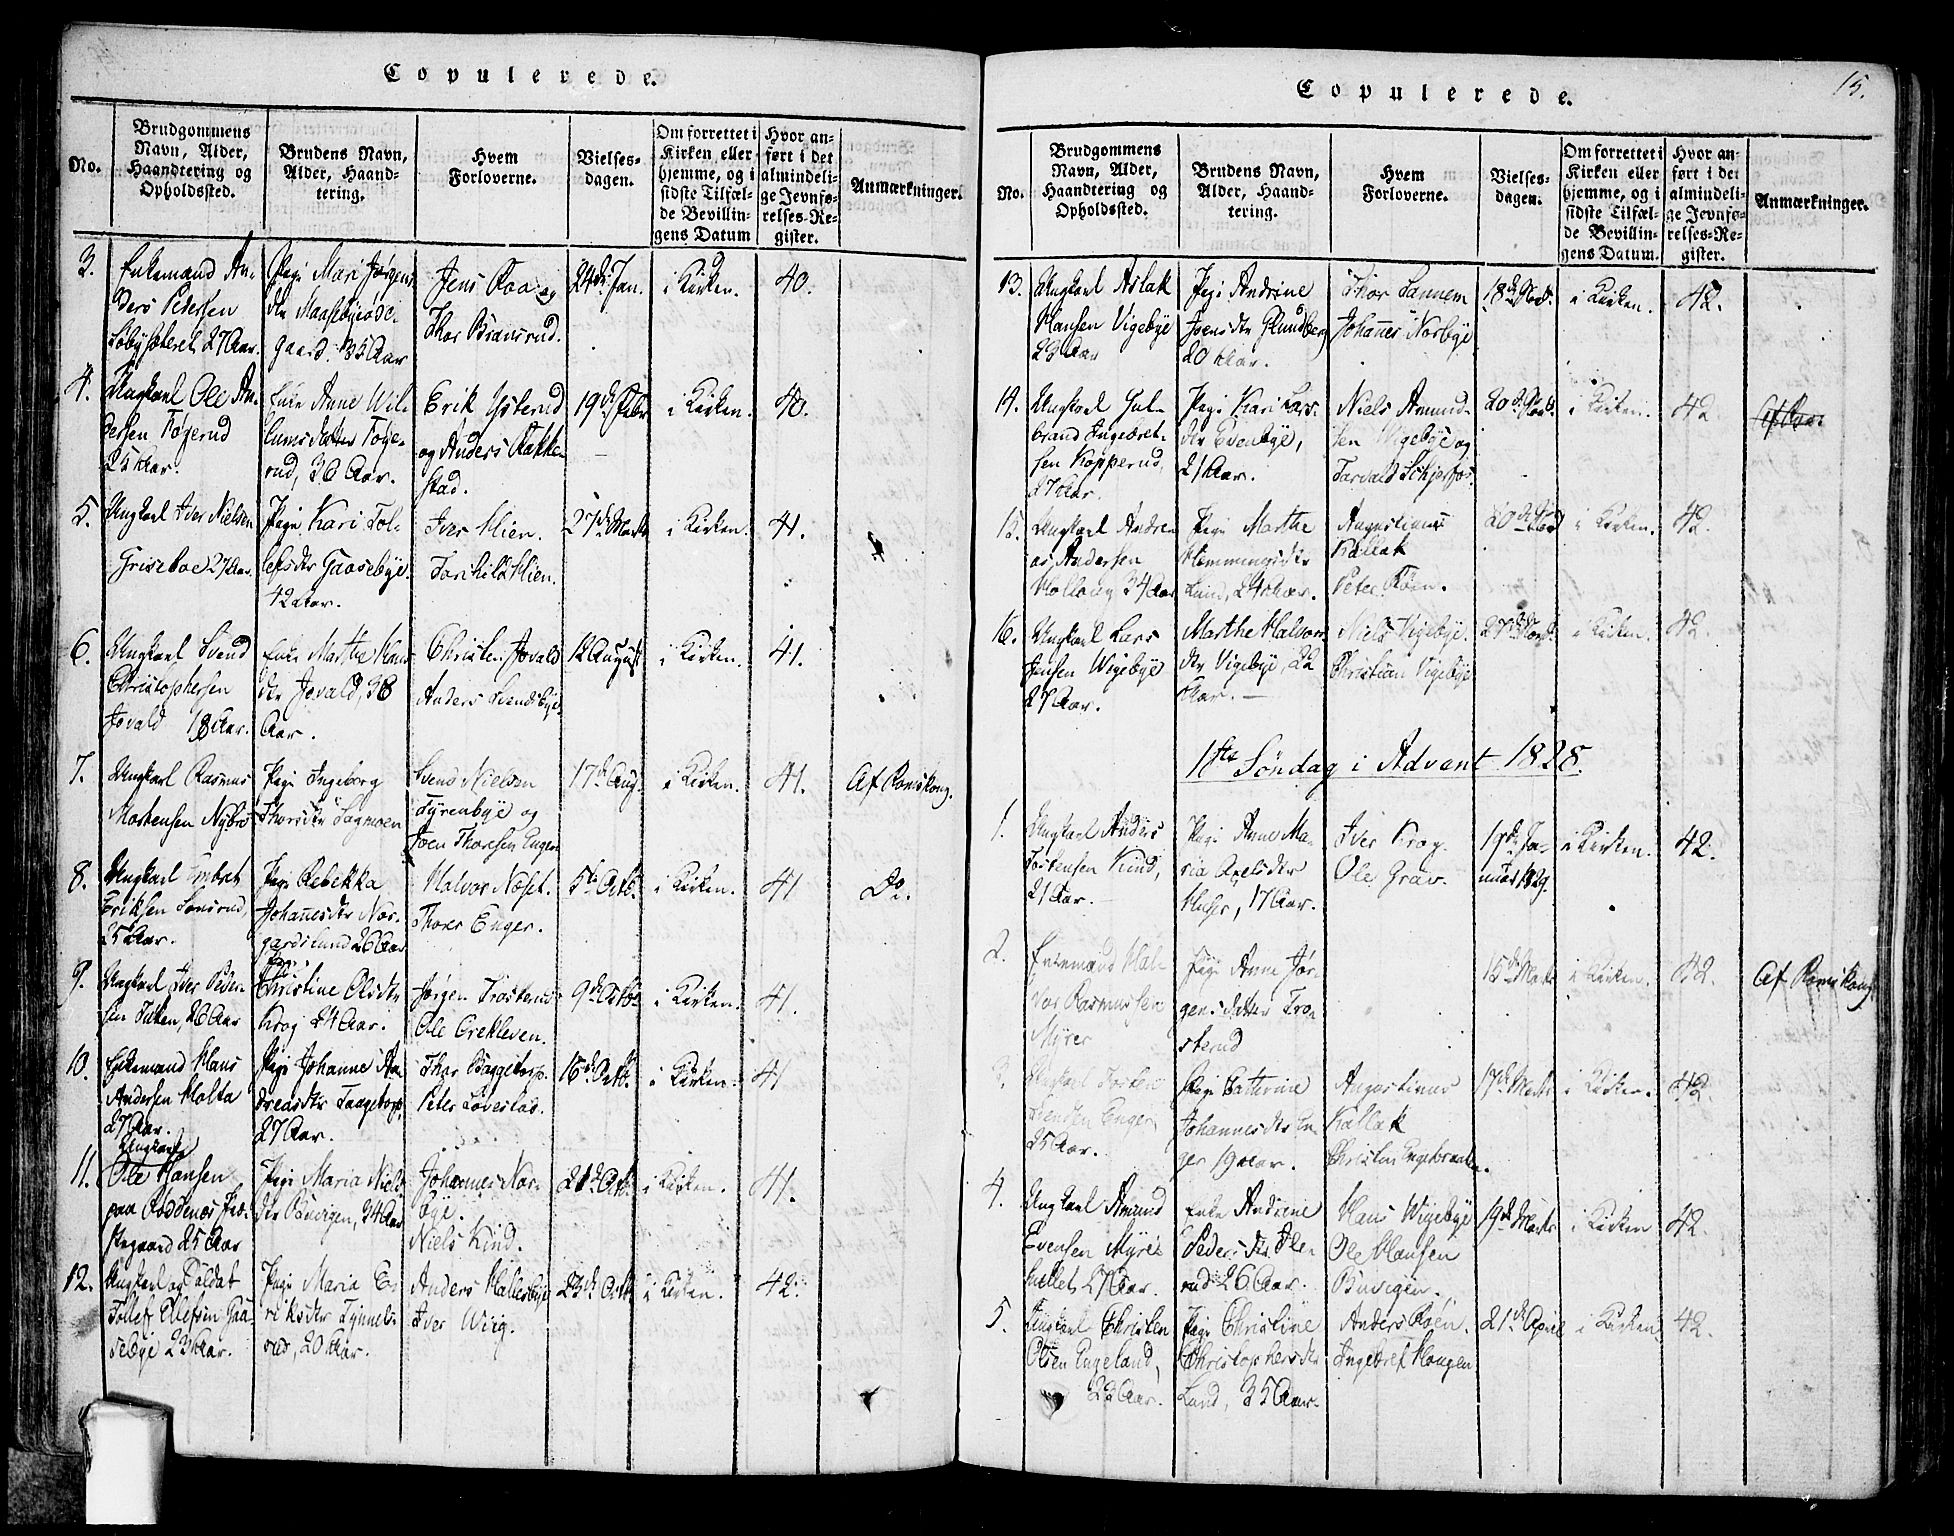 Copulerede.
No.
Brudgommens Navn, Alder, Haandtering og Opholdssted.
Brudens Navn, Alder, Haandtering.
Hvem Forloverne.
Vielsesdagen.
Om forrettet i Kirken eller hjemme, og i sidste Tilfælde Bevillingens Datum
Hvor anført i det almindelige Jevnførelses-Register.
Anmærkninger.
3.
Enkemand An-
ders Pedersen
27 Aar.
Pige Mari Jørgens
dtr
gaard. 35 Aar
Jens Roa og
Thor Bransrud.
24de Jan.
i Kirken.
40.
4.
Ungkarl Ole An-
dersen Tøjerud
25 Aar.
Enke Anne Wil-
lumsdatter Tøje-
rud, 36 Aar.
Erik Ysterud
og Anders Rakke-
stad.
19de Febr
i Kirken.
40.
5.
Ungkarl Iver Nielsen
Griseboe 27 Aar.
Pige Kari Tol-
lefsdtr Gaasebye.
42 Aar.
Iver Mien.
Torkild Mien.
27de Marts
i Kirken.
41.
6.
Ungkarl Svend
Christophersen
Jovald 18 Aar.
Enke Marthe Hans
dtr Jovald, 38
Aar.
Christen Jovald
Anders Svendsbye.
12 August
i Kirken.
41.
7.
Ungkarl Rasmus
Mortensen Nybro
Pige Ingeborg
Thorsdtr Lagmoen
Svend Nielsen
Tyrenbye og
Joen Thoresen Enger
17de Aug.
i Kirken.
41.
Af Romskoug.
8.
Ungkarl Embret
Eriksen Sonsrud,
25 Aar.
Pige Rebekka
Johannesdtr Nor-
gardslund 26 Aar
Halvor Næset.
Thorer Enger.
5te Octb.
i Kirken.
41
Do.
9.
Ungkarl Iver Peder-
sen Tuken, 26 Aar
Pige
Christine Olsdtr
Krog 24 Aar.
Jørgen Trosterud
Ole Grekleven.
9de Octb.
i Kirken.
41.
10.
Enkemand Hans
Andersen Molta
27 Aar.
Pige Johanne An-
dreasdtr Taagetorp
27 Aar.
Thor Baggetorp.
Peter Lovestad.
16de Octb.
i Kirken.
41
11.
Ungkarl
Ole Hansen
paa Røddenæs Præ-
stegaard 25 Aar
Pige Maria Niels
dtr Buvigen, 34 Aar
Johannes Nor-
bye.
Niels Kind.
21de Octb.
i Kirken.
41.
12.
Ungkarl og Soldat
Tollef Olefsen Gaa
sebye 23 Aar.
Pige Maria Er-
riksdtr Tynnels-
rud, 20 Aar.
Anders Hallesbye
Iver Wiig.
23de Octb
i Kirken.
42.
Copulerede.
15.
No.
Brudgommens Navn, Alder, Haandtering og Opholdssted.
Brudens Navn, Alder, Haandtering.
Hvem Forloverne.
Vielsesdagen.
Om forrettet i Kirken eller hjemme, og i sidste Tilfælde Bevillingens Datum.
Hvor anført i det almindelige Jevnførelses-Register.
Anmærkninger.
13.
Ungkarl Aslak
Hansen Vigebye
23 Aar
Pige Andrine
Joensdtr Grundberg
20 Aar.
Thor Sannem
Johannes Norbye
18de Nov.
i Kirken.
42.
14.
Ungkarl Gul-
brand Ingebret-
sen Kopperud,
27 Aar.
Pige Kari Lars-
dtr Evenbye,
21 Aar.
Niels Amund-
sen Wigebye og
Torvald Schjerfos.
20de Novb.
i Kirken.
42.
15.
Ungkarl Andre
as Andersen
Holloug 34 Aar
Pige Marthe
Hemmingsdtr
Lund, 24 Aar.
Augustinus
Kallak
Peter Røen.
20de Nov
i Kirken.
42.
16.
Ungkarl Lars
Jensen Wigebye
27 Aar.
Marthe Halvors
dtr Vigebye, 22
Aar.
Niels Vigebye.
Christian Vigebye
27de Novb.
i Kirken.
42.
1ste Søndag i Advent 1828.
1.
Ungkarl Anders
Torstensen Kind,
21 Aar.
Pige Anne Ma-
ria Axelsdtr
Huser, 17 Aar.
Iver Krog.
Ole Grav.
19de Ja-
nuar 1829.
i Kirken.
42.
2.
Enkemand Hal-
vor Rasmussen
Myrer
Pige Anne Jør-
gensdatter Tro-
sterud
15de Marts
i Kirken.
42.
Af Romskoug
3.
Ungkarl Torsten
Svendsen Enger
25 Aar.
Pige Catherine
Johannesdtr En-
ger 19 Aar.
Augustinus
Kallak
Christen Engebraaten.
17de Marts
i Kirken.
42.
4.
Ungkarl Amund
Evensen Myre-
hullet 27 Aar.
Enke Andrine
Pedersdtr Ole-
rud 26 Aar.
Hans Wigebye
Ole Hansen
Buvigen.
19de Marts
i Kirken
42.
5.
Ungkarl Christen
Olsen Engeland,
22 Aar.
Pige Christine
Christophersdtr
Lund, 35 Aar.
Anders Røen.
Ingebret Hougen
21de April
i Kirken
42.